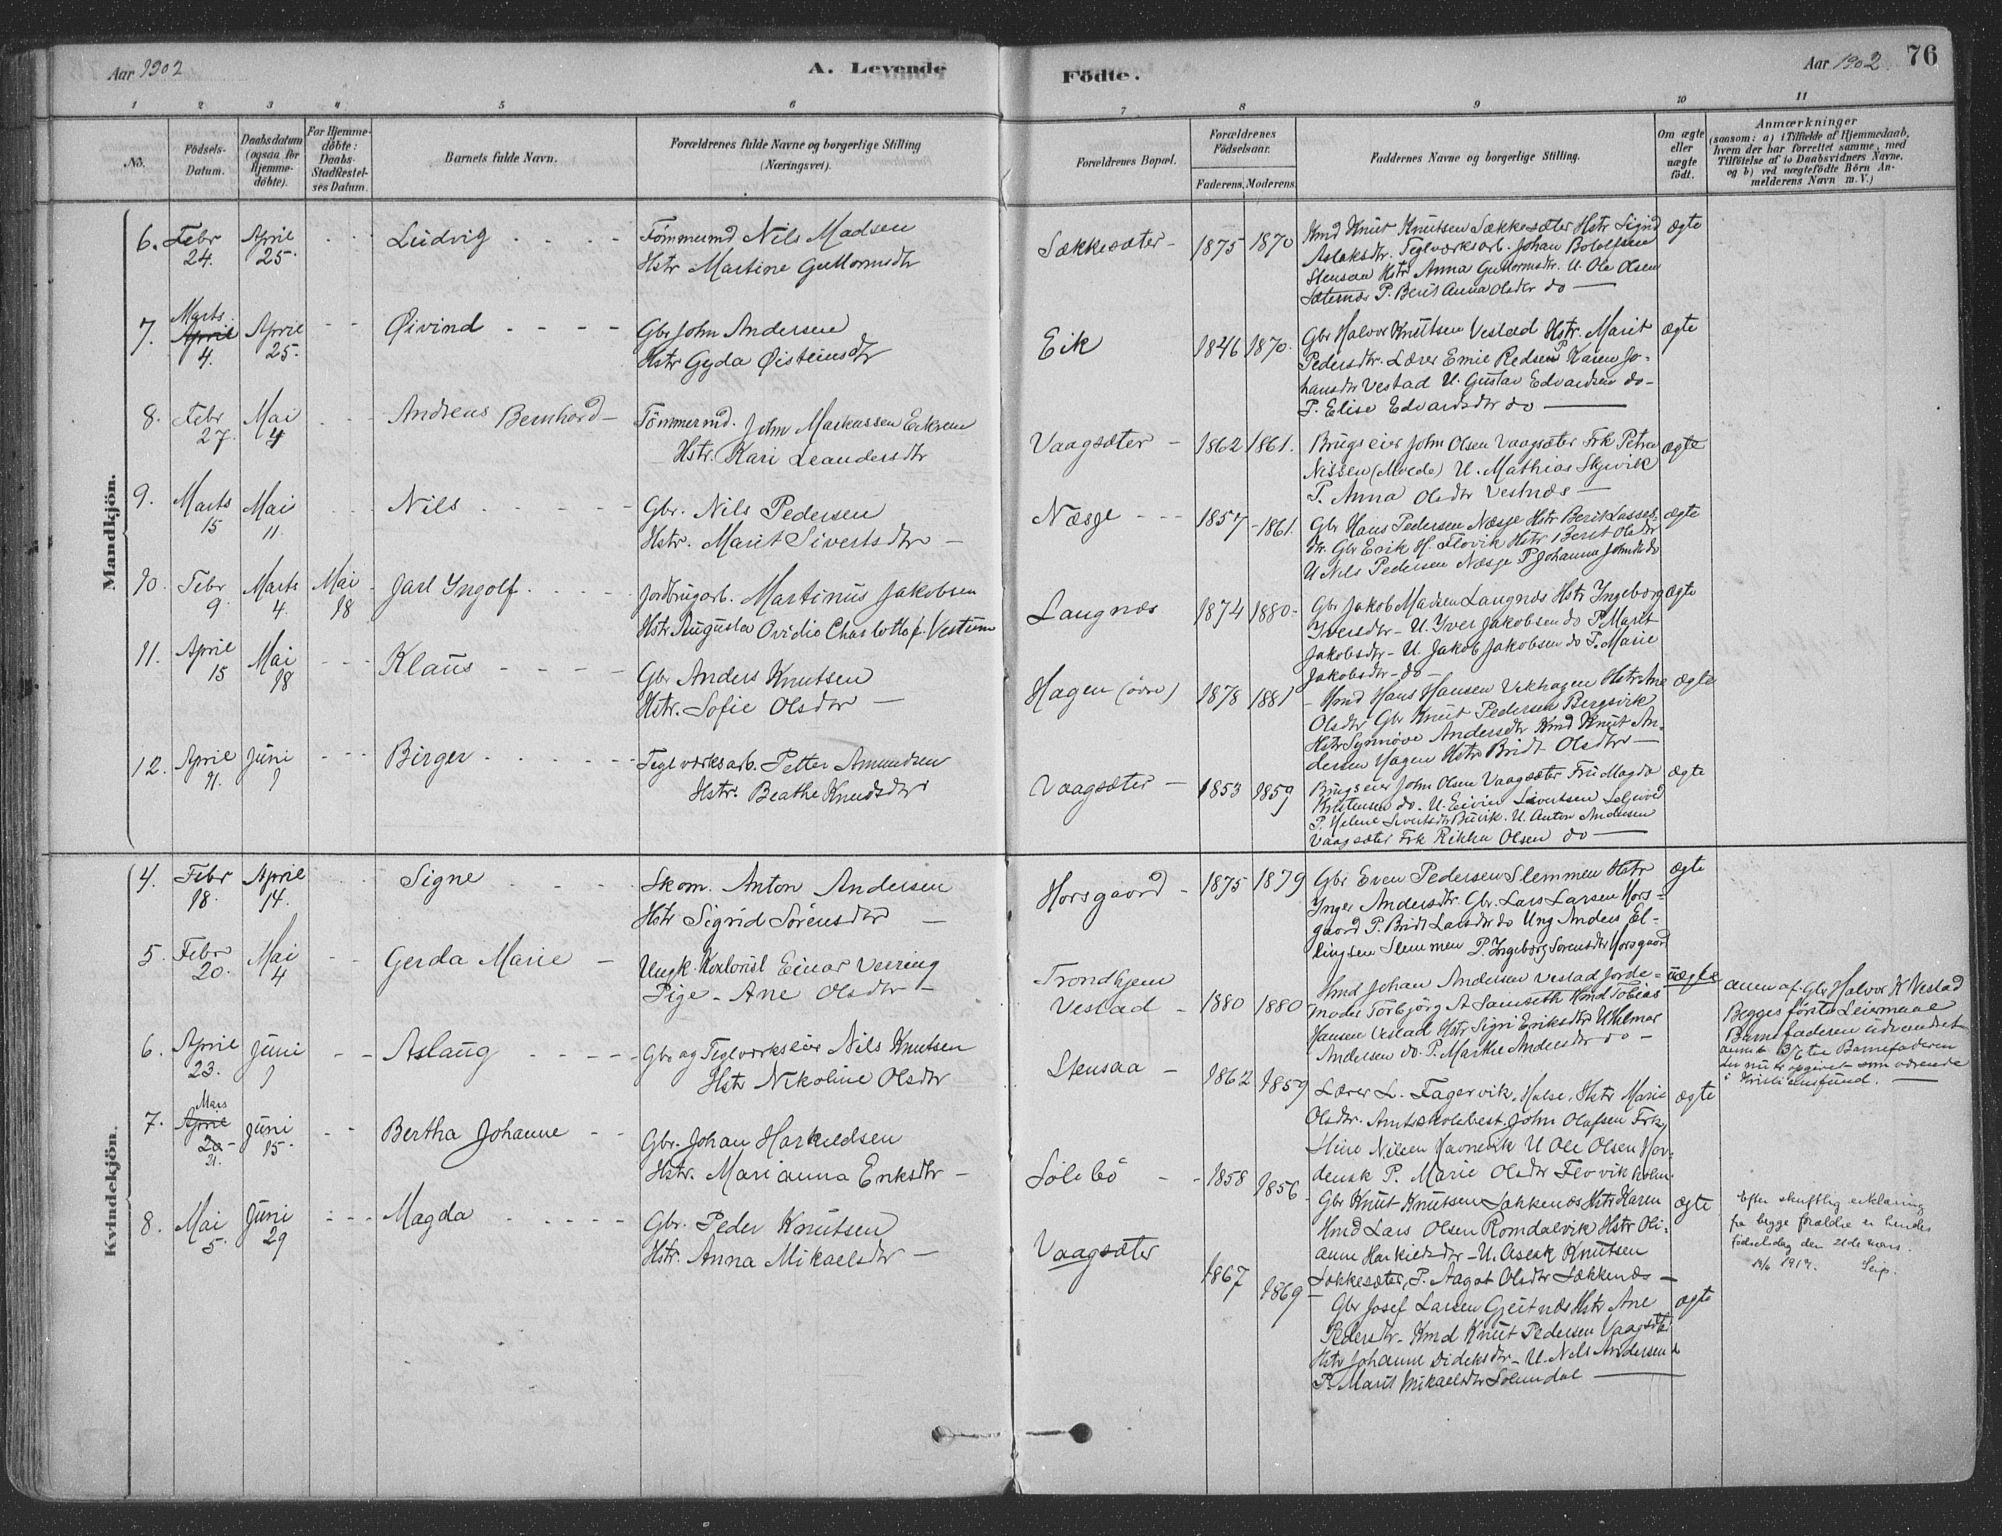 Aar 1902
A. Levende
Födte.
Aar 1902.
76
1 2 3 4 5 6 7 8 9 10 11
No.
Födsels-
Datum.
Daabsdatum
(ogsaa for
Hjemme-
döbte).
For Hjemme-
döbte:
Daabs-
Stadfæstel-
ses Datum.
Barnets fulde Navn.
Forældrenes fulde Navne og borgerlige Stilling
(Næringsvei).
Forældrenes Bopæl.
Forældrenes
Födselsaar.
Faderens. Moderens.
Faddernes Navne og borgerlige Stilling.
Om ægte
eller
uægte
födt.
Anmærkninger
(saasom: a) i Tilfælde af Hjemmedaab,
hvem der har forrettet samme, med
Tilföielse af to Daabsvidners Navne,
og b) ved uægtefödte Börn An-
melderens Navn m. V.)
Mandkjön.
6. Febr 24. April 25. Ludvig
Tömmermd Nils Madsen
Hstr Martine Guttormsdtr
Sækkesæter 1875 1870
Kmd Knut Knutsen Sækkesæter Hstr Sigrid
Aslaksdtr. Teglværksarb. Johan Bololfsen
Stensaa Hstr Anna Guttormsdtr. U. Ole Olsen
Sæternæs P. Berit Anna Olsdtr do
ægte
7. Marts April 4. April 25. Øivind
Gbr John Andersen
Hstr Gyda Øisteinsdtr
Eik 1846 1870.
Gbr Halvor Knutsen Vestad Hstr. Marit
Pedersdtr. Lærer Emil Redsen P. Karen Jo-
hansdtr Vestad U. Gustav Edvardsen do
P. Elise Edvardsdtr do
ægte
8. Febr 27. Mai 4 Andreas Bernhard
Tömmermd. John Markussen Eikrem
Hstr. Kari Leandersdtr
Vaagsæter 1862 1861.
Brugseier John Olsen Vaagsæter Frk Petra
Nissen (Molde) U. Mathias Skjevik
P. Anna Olsdtr Vestnæs
ægte
9. Marts 15 Mai 11. Nils
Gbr. Nils Pedersen
Hstr. Marit Sivertsdtr
Næsje 1857 1861.
Gbr Hans Pedersen Næsje Hstr Berit Lasses-
dtr. Gbr Erik H. Flovik Hstr Berit Olsdtr
U Nils Pedersen Næsje P Johanna Johnsdtr do
ægte
10. Febr 9. Marts 4. Mai 18 Jarl Ingolf
Jordbrugarb. Martinus Jakobsen
Hstr Augusta Ovidia Charlotte f. Vestrum
Langnæs 1874 1880
Gbr Jakob Madsen Langnæs Hstr Ingeborg
Iversdtr U. Iver Jakobsen do P. Marit
Jakobsdtr U. Jakob Jakobsen do P. Marie
Jakobsdtr do
ægte
11. April 15 Mai 18 Klaus
Gbr Anders Knutsen
Hstr. Sofie Olsdtr
Hagen (övre) 1878 1881
Kmd Hans Hansen Vikhagen Hstr Ane
Olsdtr Gbr Knut Pedersen Bergsvik
Hstr Synnöve Andersdtr Kmd Knut An-
dersen Hagen Hstr Bridt Olsdtr
ægte
12. April 11. Juni 1 Birger
Teglværksarb. Petter Amundsen
Hstr. Beathe Knudsdtr
Vaagsæter 1853 1859
Brugseier John Olsen Vaagsæter Fru Magda
Kristensen do. U. Eivin Sivertsen
P. Helene Sivertsdtr Buvik. U. Anton Andersen
Vaagsæter Frk Rikka Olsen do
ægte
Kvindekjön.
4. Febr 18. April 14. Signe
Skom. Anton Andersen
Hstr Sigrid Sörensdtr
Horsgaard 1875 1879
Gbr Even Pedersen Slemmen Hstr
Inger Andersdtr. Gbr. Lars Larsen Hors-
gaard P. Bridt Larsdtr do Ung Anders El-
lingsen Slemmen P. Ingeborg Sorensdtr Horsgaard
ægte
5. Febr 20. Mai 4 Gerda Marie
Ungk. Einar Verring
Pige Ane Olsdtr
Trondhjem
Vestad 1880 1880
Kmd Johan Andersen Vestad Jorde-
moder Torbjörg A Samseth Kmd Tobias
Hansen Vestad Hstr Sigri Eriksdtr U Hilmar
Andersen do. P. Marthe Andersdtr do
uægte
anm af Gbr Halvor K Vestad
Begges förste Leiermaal
Barnefaderen udvandret
Barnefaderen
opgivet som værende
i Kristiansund.
6. April 23. Juni 1 Aslaug
Gbr og Teglværkseier Nils Knutsen
Hstr Nikoline Olsdtr
Stensaa 1862 1859
Lærer L. Fagervik, Halse, Hstr Marie
Olsdtr. Amtsskolebest. John Olafsen Frk
Nilsen Havneeik U Ole Olsen Hor-
densk P. Marie Olsdtr Flovikholm
ægte
7. Mars April 20 21. Juni 15. Bertha Johanne
Gbr. Johan Harkildsen
Hstr. Marianna Eriksdtr
Sölebö 1858 1856
Gbr Knut Knutsen Sækkenæs Hstr Karen
Kmd Lars Olsen Romdalvik Hstr Oli-
anne Harkieldsdtr U. Aslak Knutsen
Sækkesæter, P. Aagot Olsdtr Sækkenæs
ægte
Efter skriftlig erklæring
fra begge forældre er hendes
födselsdag den 21de mars.
19/6 1917. Seip.
8. Mai 5. Juni 29 Magda
Gbr. Peder Knutsen
Hstr. Anna Mikaelsdtr
Vaagsæter 1867 1869
Gbr Josef Larsen Gjeitnæs Hstr Ane
Pedersdtr Kmd Knut Pedersen Vaagsæt
Hstr Johanne Didriksdtr U. Nils Andersen do
P. Marit Mikaelsdtr Solemdal
ægte